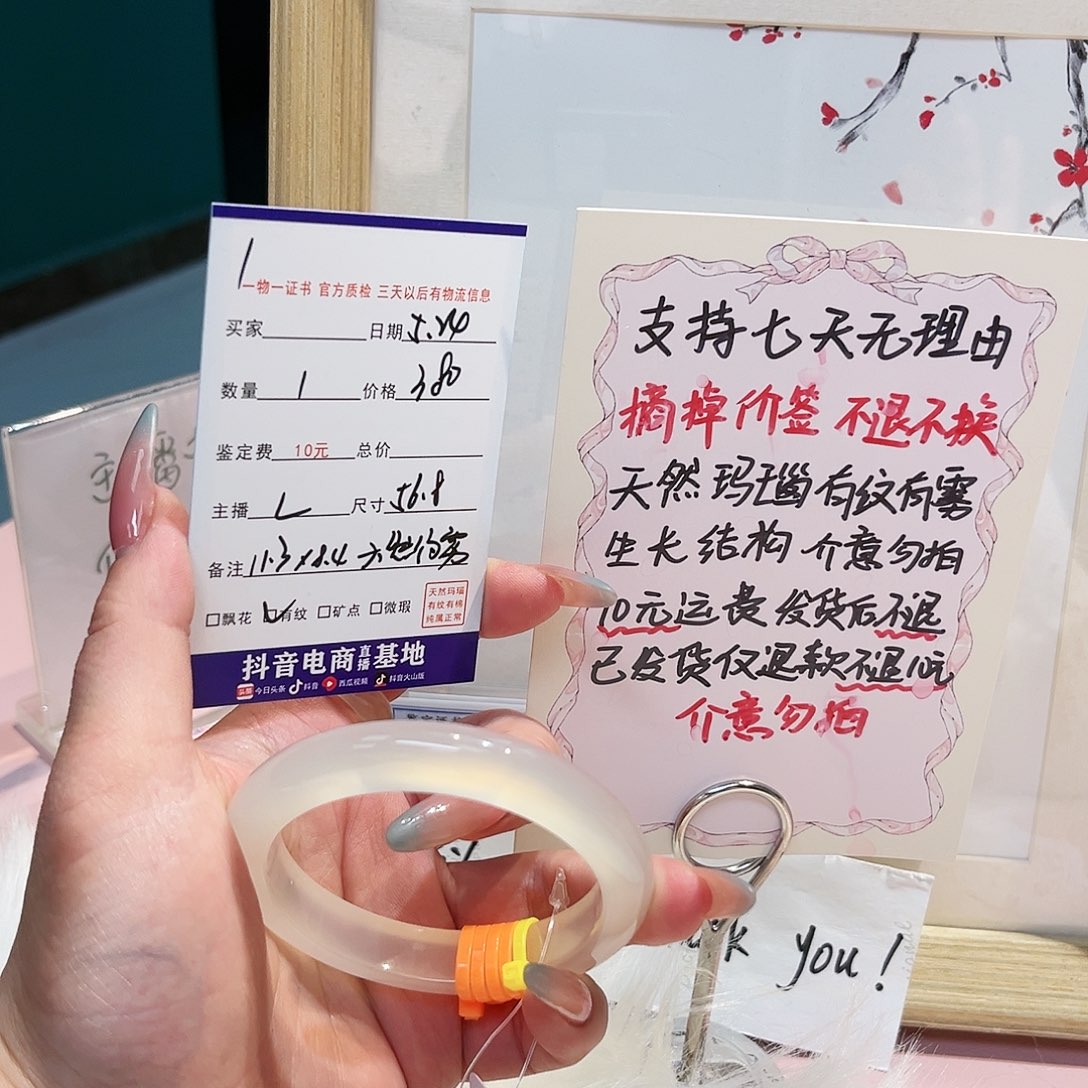 1
一物一证书 官方质检 三天以后有物流信息
买家 日期 5.24
数量 1 价格 380
鉴定费 10元 总价
主播 L 尺寸 56.8
备注 11.3×8.4
□飘花 ☑有纹 □矿点 □微瑕
天然玛瑙
有纹有棉
纯属正常
抖音电商直播基地
头条 今日头条 抖音 西瓜视频 抖音火山版
支持七天无理由
摘掉价签 不退不换
天然玛瑙有纹有雾
生长结构 介意勿拍
10元运丧 发货后不退
已发货仅退款不退10元
介意勿拍
you!